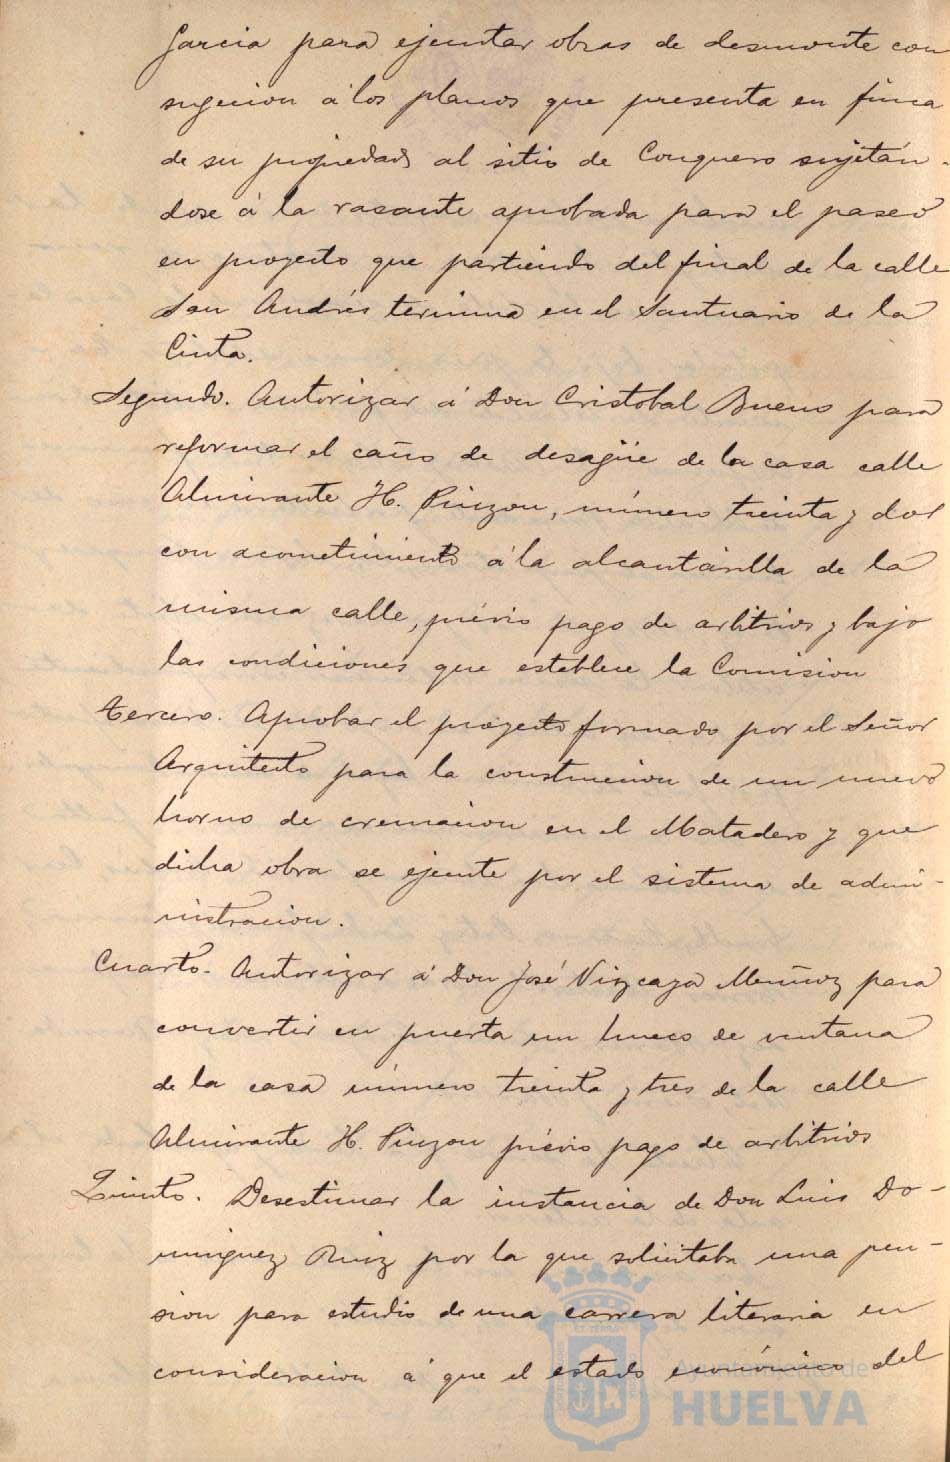 Garcia para ejecutar obras de desmonte con
sugecion á los planos que presenta en finca
de su propiedad al sitio de Conquero sujetán-
dose á la rasante aprobada para el paseo
en proyecto que partiendo del final de la calle
San Andrés termina en el Santuario de la
Cinta.
Segundo. Autorizar á Don Cristobal Bueno para
reformar el caño de desagüe de la casa calle
Almirante H. Pinzon, número treinta y dos
con acometimiento á la alcantarilla de la
misma calle, prévio pago de arbitrios y bajo
las condiciones que establece la Comision
Tercero. Aprobar el proyecto formado por el Señor
Arquitecto para la construccion de un nuevo
horno de cremacion en el Matadero y que
dicha obra se ejecute por el sistema de admi-
nistracion.
Cuarto. Autorizar á Don José Vizcaya Muñoz para
convertir en puerta un hueco de ventana
de la casa número treinta y tres de la calle
Almirante H. Pinzon prévio pago de arbitrios
Quinto. Desestimar la instancia de Don Luis Do-
minguez Ruiz por la que solicitaba una pen-
sion para estudio de una carrera literaria en
consideracion á que el estado económico del
Ayuntamiento de
HUELVA